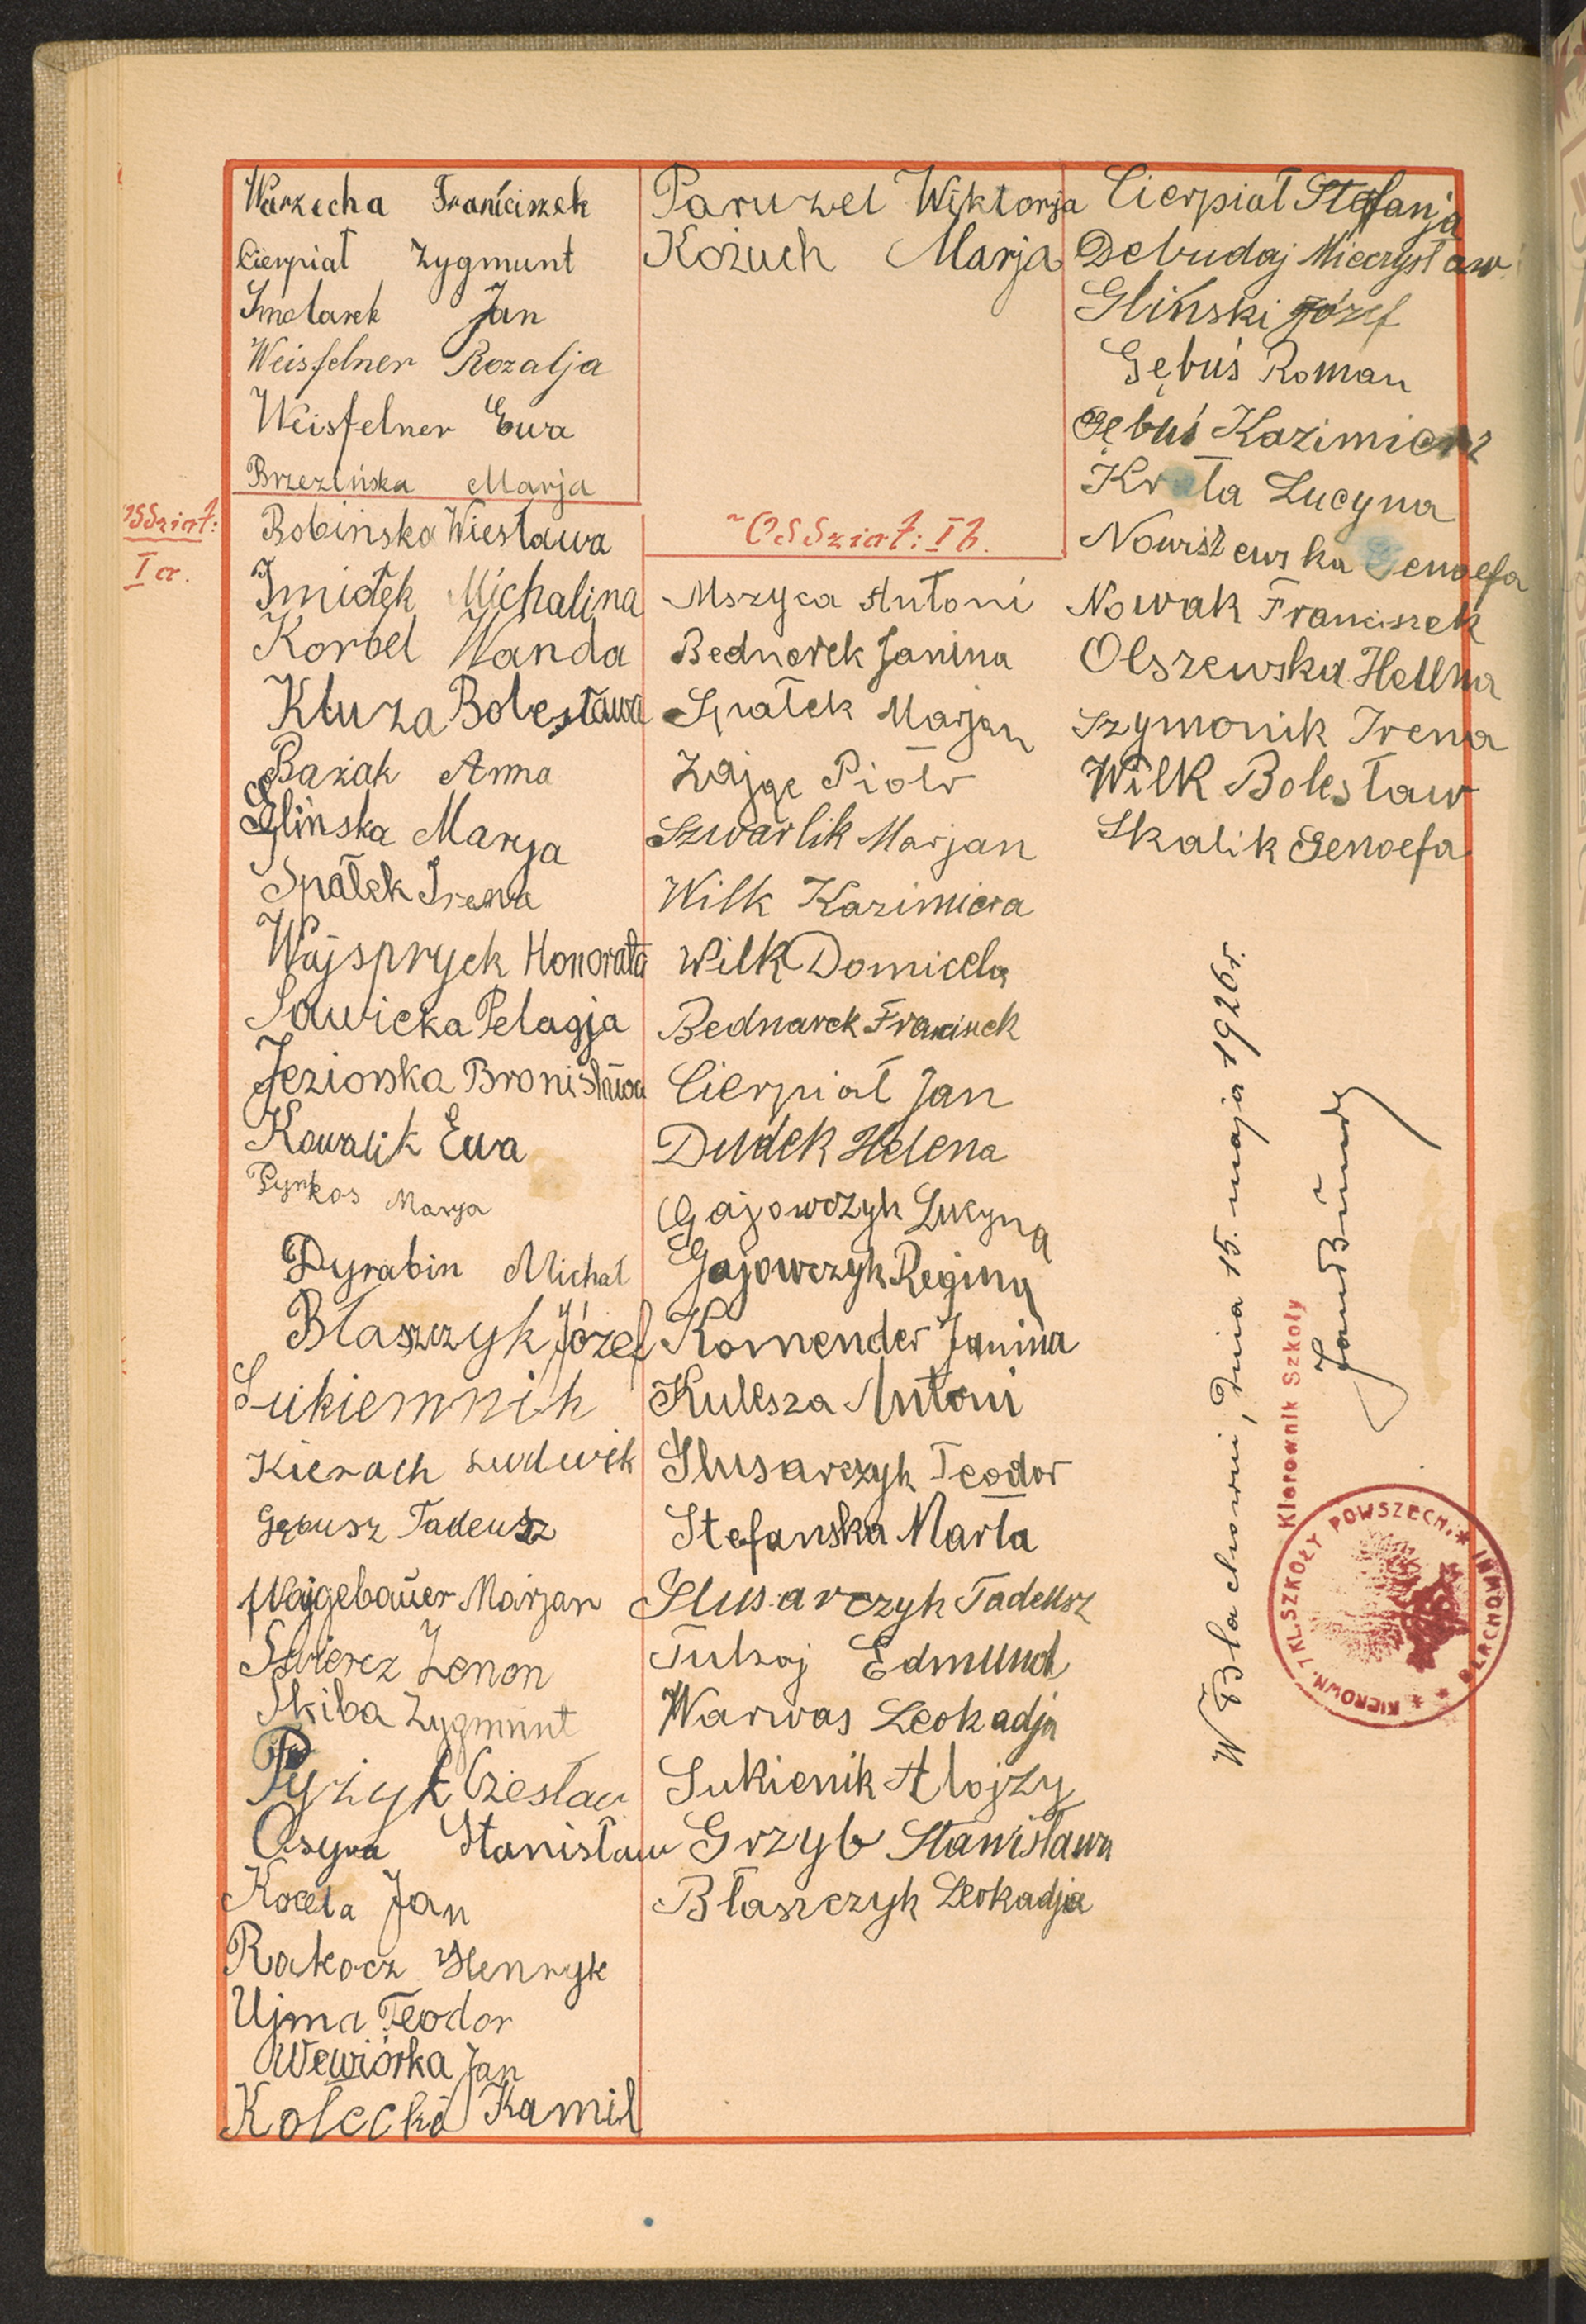 Warzecha Franciszek
Cierpiał Zygmunt
Smolarek Jan
Weisfelner Rozalja
Weisfelner Ewa
Brzezińska Marja
Oddział:
I a.
Bobińska Wiesława
Imiołek Michalina
Korbel Wanda
Kluza Bolesława
Bażak Anna
Glińska Marya
Spałek Irena
Wajspryck Honorata
Sawicka Pelagja
Jeziorska Bronisława
Kowalik Ewa
Pyrkos Marya
Dyrabin Michał
Błaszczyk Józef
Sukiemnik
Kierach Ludwik
Gębusz Tadeusz
Wajgebauer Marjan
Świercz Zenon
Skiba Zygmunt
Pyżyk Czesław
Osyra Stanisław
Kocela Jan
Rakocz Henryk
Ujma Teodor
Wewiórka Jan
Kolecki Kamil
Paruzel Wiktorja
Kożuch Marja
Oddział: I b.
Mszyca Antoni
Bednarek Janina
Spałek Marjan
Zając Piotr
Szwarlik Marjan
Wilk Kazimiera
Wilk Domicela
Bednarek Franciszek
Cierpiał Jan
Dudek Helena
Gajowczyk Lucyna
Gajowczyk Regina
Komender Janina
Kulesza Antoni
Slusarczyk Teodor
Stefanska Marta
Slusarczyk Tadeusz
Tulsaj Edmund
Warwas Leokadja
Sukienik Alojzy
Grzyb Stanisława
Błaszczyk Leokadja
Cierpiał Stefanja
Debudaj Mieczysław
Gliński Józef
Gębuś Roman
Gębuś Kazimierz
Krata Lucyna
Nowiszewska Genoefa
Nowak Franciszek
Olszewska Helena
Szymonik Irena
Wilk Bolesław
Skalik Genoefa
W Blachowni, dnia 15. maja 1926 r.
Kierownik Szkoły
KIEROWN. 7 KL. SZKOŁY POWSZECH. * W BLACHOWNI *